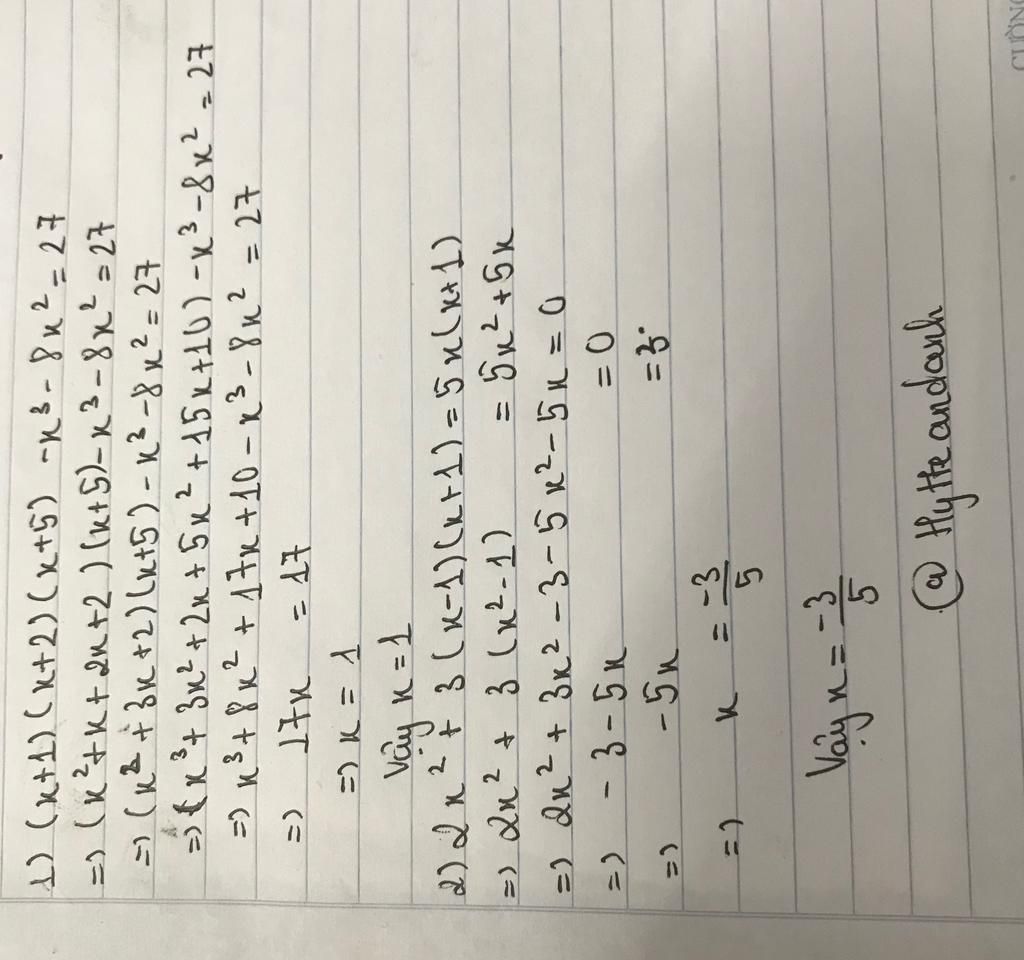 1) (x+1)(x+2)(x+5) -x³- 8x² = 27
=> (x²+x+2x+2)(x+5)-x³-8x² = 27
=> (x²+3x+2)(x+5)-x³-8x² = 27
=> (x³+3x²+2x+5x²+15x+10)-x³-8x² = 27
=> x³+8x²+17x+10-x³-8x² = 27
=> 17x = 17
=> x = 1
Vậy x = 1
2) 2x²+3(x-1)(x+1) = 5x(x+1)
=> 2x²+ 3(x²-1) = 5x²+5x
=> 2x²+3x²-3-5x²-5x = 0
=> -3-5x = 0
=> -5x = 3
=> x = -3/5
Vậy x = -3/5
@ Hytteandanh